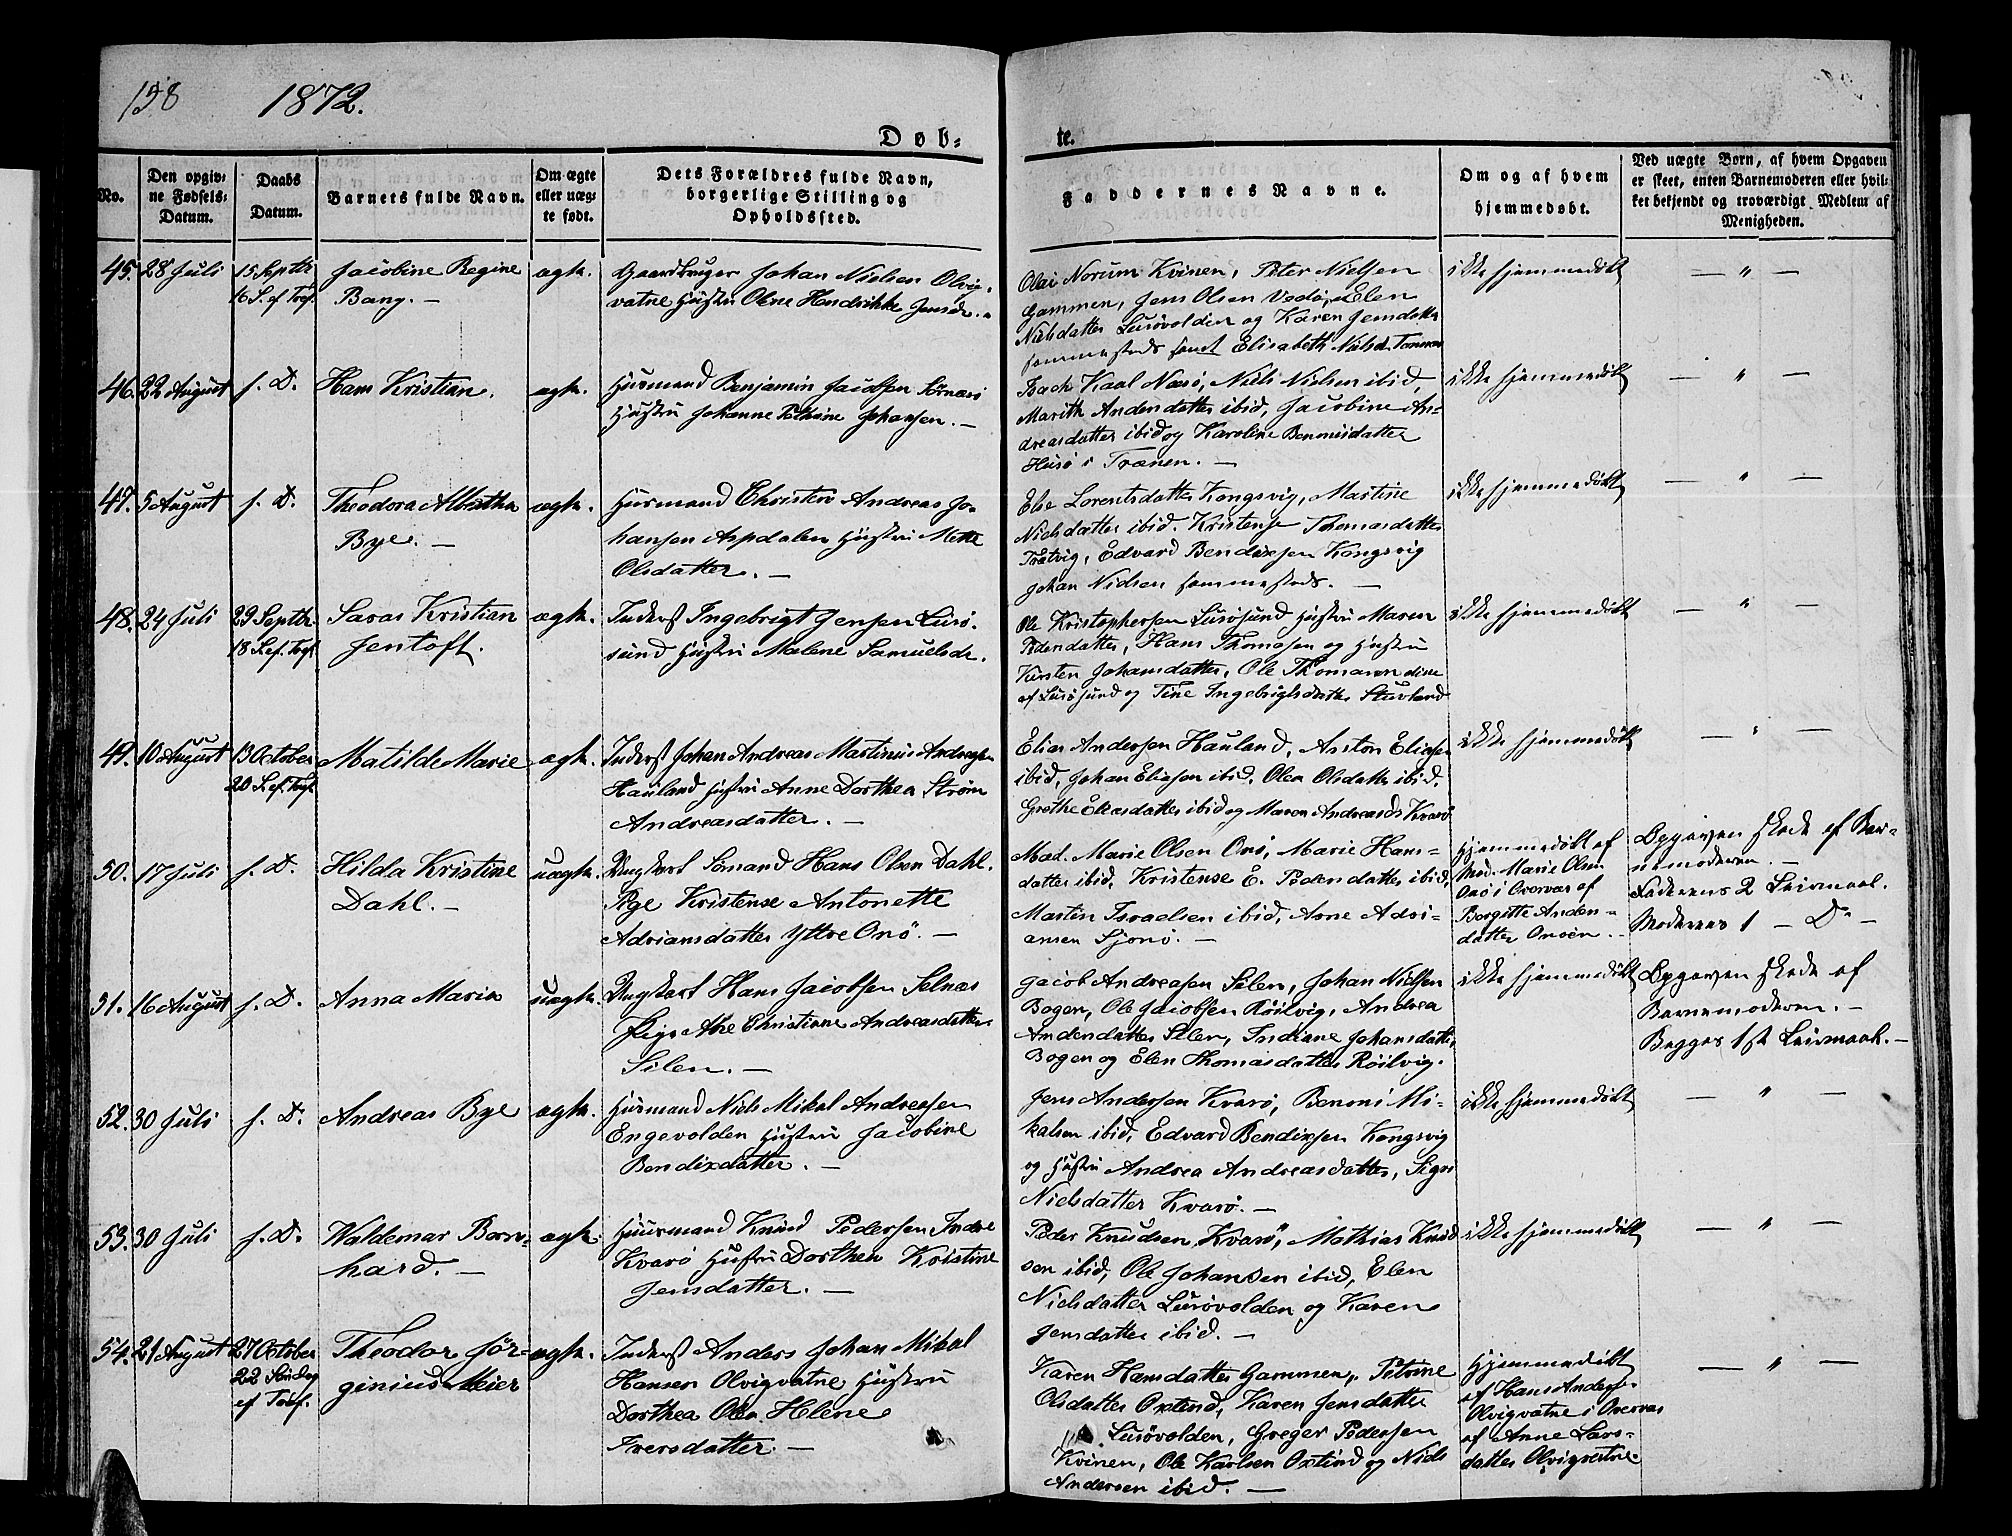 158 1872.
Døb-
te.
No.
Den opgiv-
ne Fødsels-
Datum.
Daabs
Datum.
Barnets fulde Navn.
Om ægte
eller uæg-
te født.
Dets Forældres fulde Navn,
borgerlige Stilling og
Opholdssted.
Faddernes Navne.
Om og af hvem
hjemmedøbt.
Ved uægte Born, af hvem Opgaven
er skeet, enten Barnemoderen eller hvil-
ket bekjendt og troværdigt Medlem af
Menigheden.
45. 28 Juli
15 Septbr
16 S. ef Tref.
Jacobine Regine
Bang. —
ægte.
Gaardbruger Johan Nielsen Olvig-
vatne Hustru Olene Hendrikke Jensdr. „
Olai Norum Kvinen, Peter Nielsen
Gammen, Jens Olsen Vedø, Elen
Nielsdatter Lurøvolden og Karen Jensdatter
sammesteds samt Elisabeth Nielsd. Tonnes
ikke hjemmedøbt
— „ —
46. 22 August
s. D.
Hans Kristian.
ægte.
Husmand Benjamin Jacobsen Sørnæsi
Hustru Johanne Johansen. —
Bach Kaal Næsø, Niels Nielsen ibid,
Marith Andersdatter ibid, Jacobine An-
dreasdatter ibid og Karoline Bennisdatter
Husø i Trænen. —
ikke hjemmedøbt
— „ —
47. 5 August
s. D.
Theodora Albertha
Bye. —
ægte.
Husmand Christen Andreas Jo-
hansen Aspdalen Hustru Mette
Olsdatter. —
Else Lorentsdatter Kongsvig, Martine
Nielsdatter ibid. Kristense Thomasdatter
Trætvig, Edvard Bendixsen Kongsvig
Johan Nielsen sammesteds. —
ikke hjemmedøbt
— „ —
48. 24 Juli
29 Septbr.
18 S. ef. Tref.
Saras Kristian
Jentoft.
ægte.
Inderst Ingebrigt Jensen Lurø-
sund Hustru Malene Samuelsdr.
Ole Kristophersen Lurøsund Hustru Maren
Pedersdatter, Hans Thomasen og Hustru
Kirsten Johansdatter, Ole Thomasen disse
af Lurøsund og Tine Ingebrigtsdatter Stuvland
ikke hjemmedøbt
— „ —
49. 10 August
13 October
20 S. ef. Tref.
Matilde Marie
ægte.
Inderst Johan Andreas Martinius Andreasen
Hauland Hustru Anne Dorthea Strøm
Andreasdatter. —
Elias Andersen Hauland, Anton Eliasen
ibid, Johan Eliasen ibid, Olea Olsdatter ibid.
Grethe Eliasdatter ibid og Maren Andreasd. Kvarø
ikke hjemmedøbt
— „ —
50. 17 Juli
s. D.
Hilda Kristine
Dahl. —
uægte.
Ungkarl Sømand Hans Olsen Dahl.
Pige Kristense Antonette
Adriansdatter Yttre Onø. —
Mad. Marie Olsen Onø, Marie Hans-
datter ibid, Kristense E. Pedersdatter ibid,
Martin Israelsen ibid, Arne Adri-
ansen Sjonø. —
Hjemmedøbt af
Mad. Marie Olsen
Onø i Overvær af
Bergitte Anders-
datter Onøen. —
Opgaven skede af Bar-
nemoderen. —
Faderens 2 Leiermaal.
Moderens 1 — D° —
51. 16 August
s. D.
Anna Maria
uægte.
Ungkarl Hans Jacobsen Selnæs
Pige Ane Christiane Andreasdatter
Silen. —
Jacob Andreasen Silen, Johan Nielsen
Bogen, Ole Jacobsen Røilvig, Andrea
Andersdatter Silen, Indiane Johansdatter
Bogen og Elen Thomasdatter Røilvig.
ikke hjemmedøbt
Opgaven skede af
Barnemoderen. —
Begges 1st Leiermaal. —
52. 30 Juli
s. D.
Andreas Bye
ægte.
Husmand Niels Mikal Andreasen
Engevolden Hustru Jacobine
Bendixdatter. —
Jens Andersen Kvarø, Benoni Mi-
kalsen ibid, Edvard Bendixsen Kongsvig
og Hustru Andrea Andreasdatter, Sigri
Nielsdatter Kvarø. —
ikke hjemmedøbt
— „ —
53. 30 Juli
s. D.
Waldemar Bern-
hard. —
ægte.
Huusmand Knud Pedersen Indre
Kvarø Hustru Dorthea Kristine
Jensdatter. —
Peder Knudsen Kvarø, Mathias Knud-
sen ibid, Ole Johansen ibid, Elen
Nielsdatter Lurøvolden og Karen
Jensdatter ibid. —
ikke hjemmedøbt
— „ —
54. 21 August
27 October
22 Søndag
ef Tref.
Theodor Jör-
ginius Meier
ægte.
Inderst Anders Johan Mikal
Hansen Olvigvatne Hustru
Dorthea Olea Helene
Iversdatter. —
Karen Hansdatter Gammen, Petrine
Olsdatter Oxtind, Karen Jensdatter
Lurøvolden, Greger Pedersen
Kvinen, Ole Karlsen Oxtind og Niels
Andersen ibid. —
Hjemmedøbt
af Hans Anders.
Olvigvatne i Overvær
af Anne Lars-
datter Olvigvatne.
— „ —